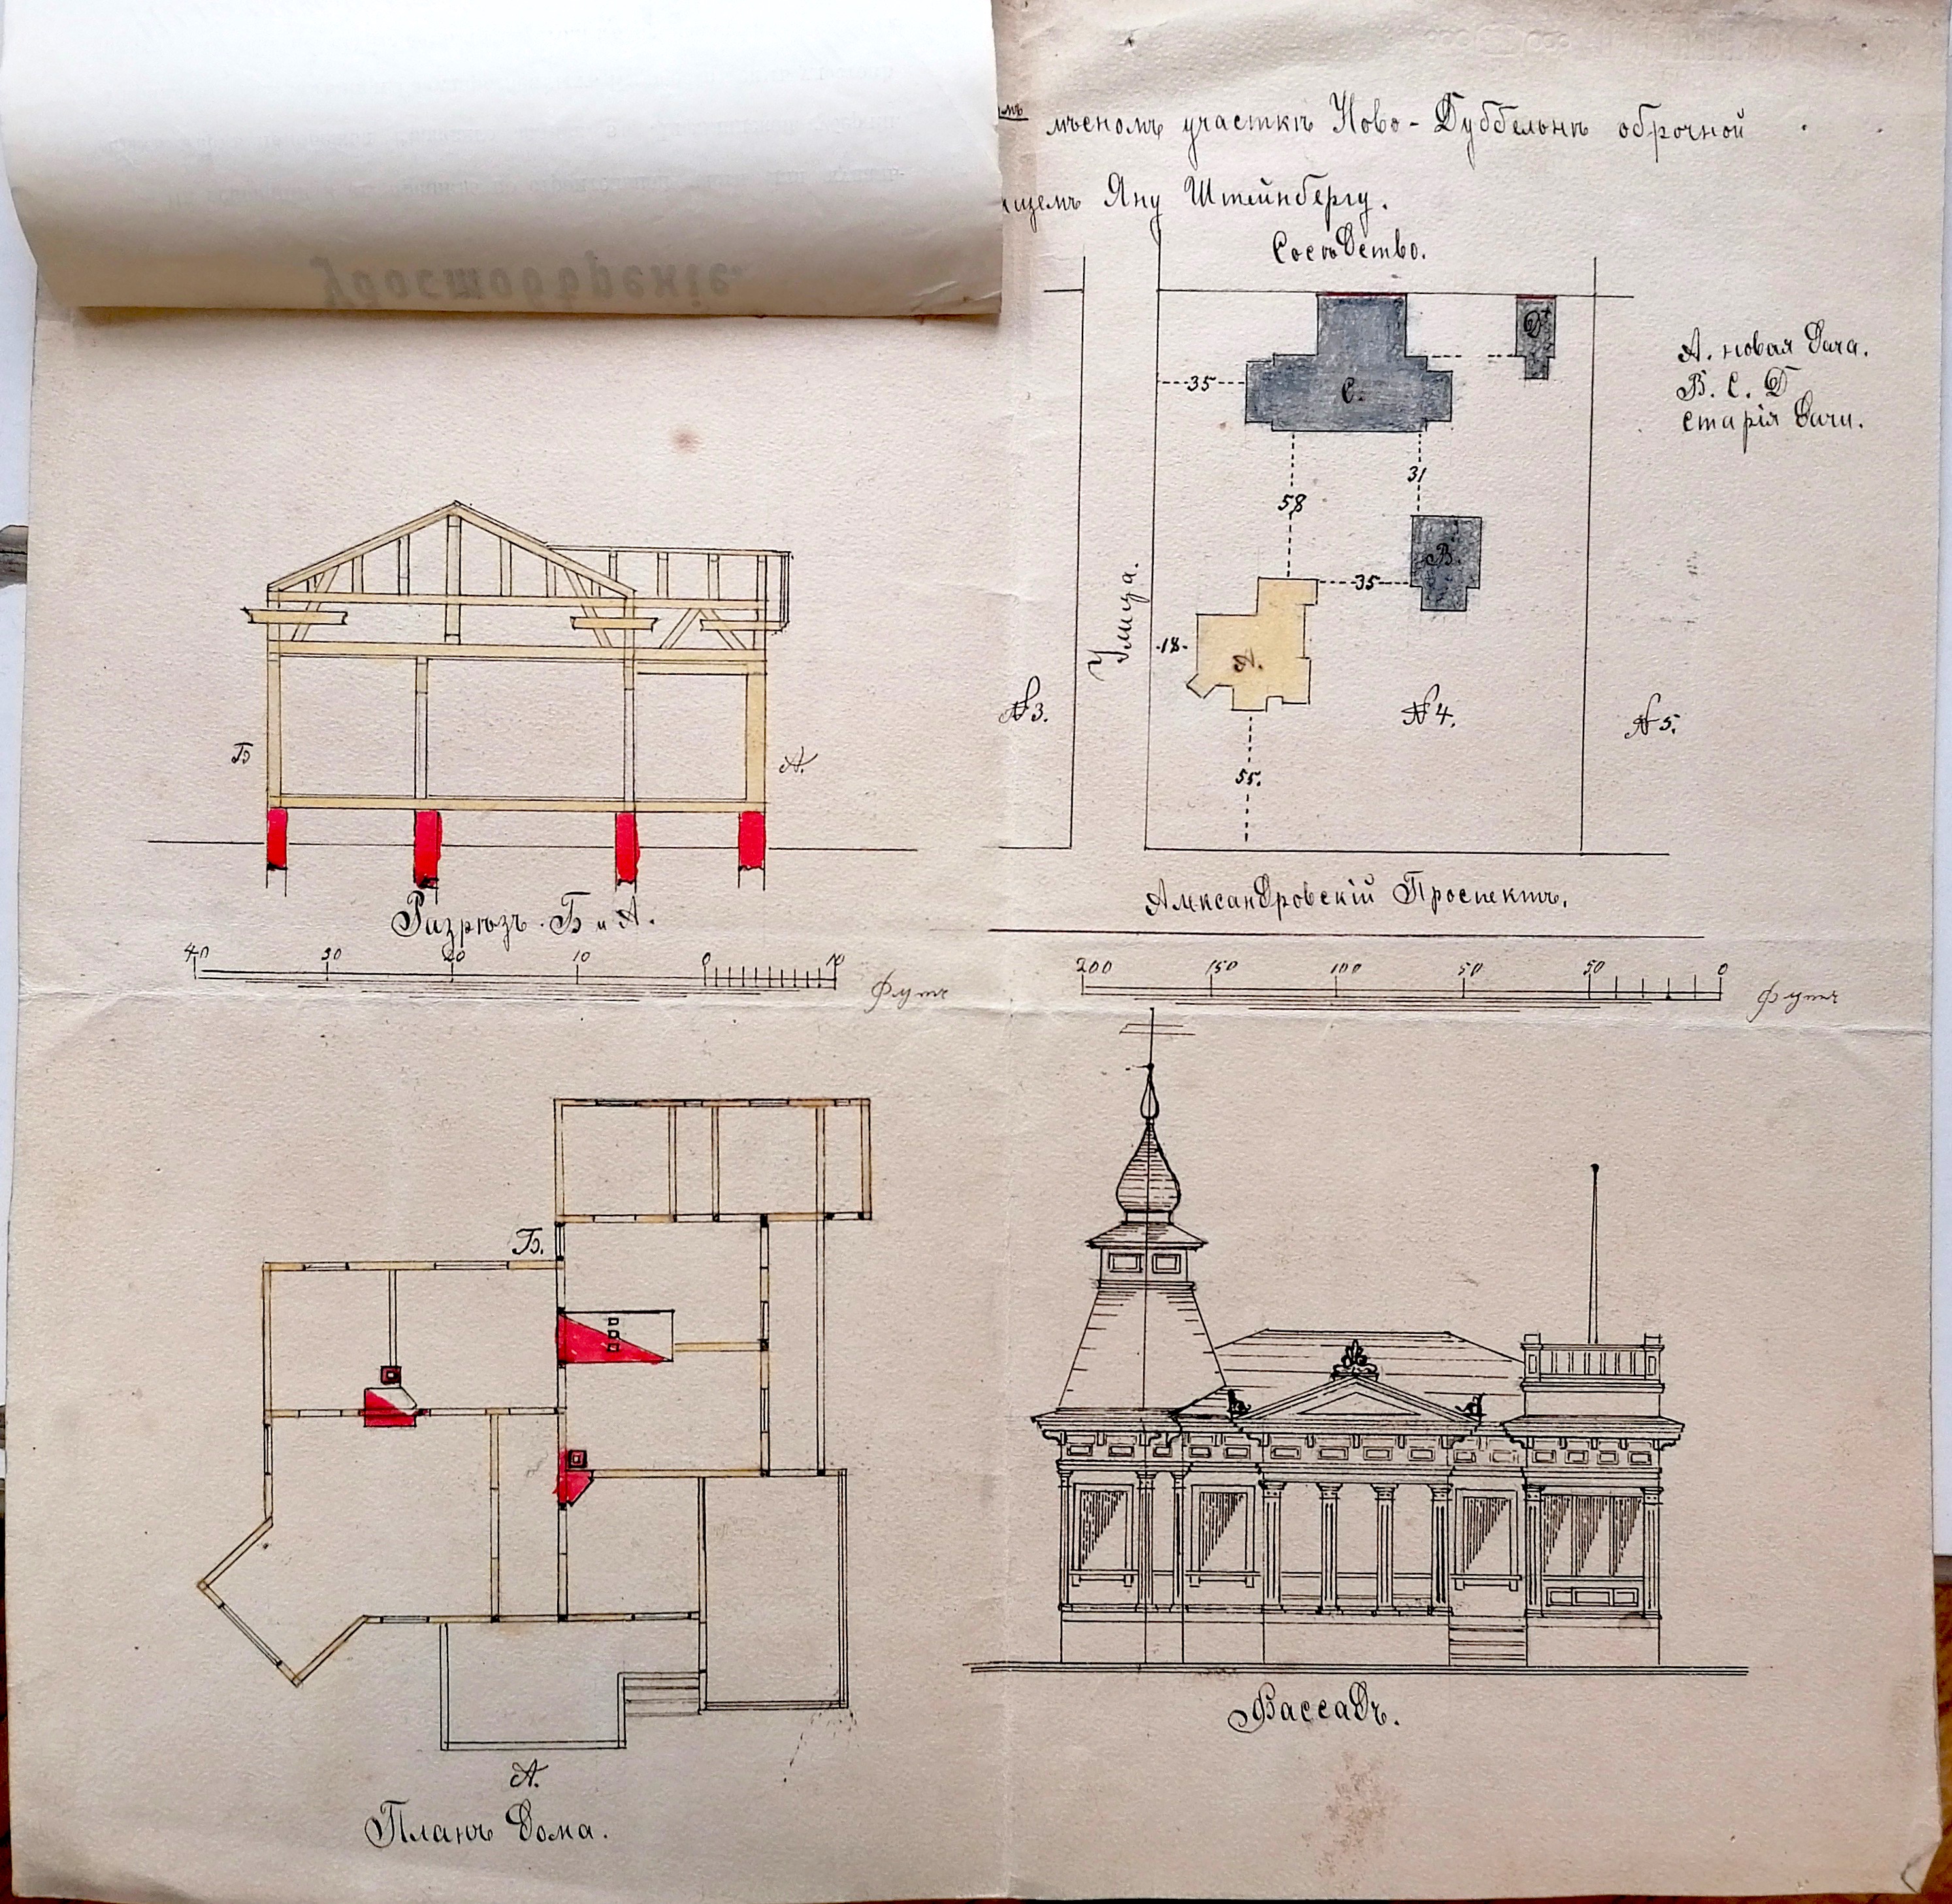 мъ лѣсномъ участкѣ Ново-Дуббельнѣ оброчной
ащемъ Яну Штейнбергу.
Сосѣдство.
D
А. новая дача.
В. С. D
старія дачи.
35
С.
31
58
В.
35
Улица.
18.
А.
№3.
№4.
№5.
55.
Александровскій Проспектъ.
200 150 100 50 50 0 Футъ
удостовѣреніе.
Б
А.
Разрѣзъ Б и А.
40 30 20 10 0 10 Футъ
Б.
А.
Планъ дома.
Фассадъ.